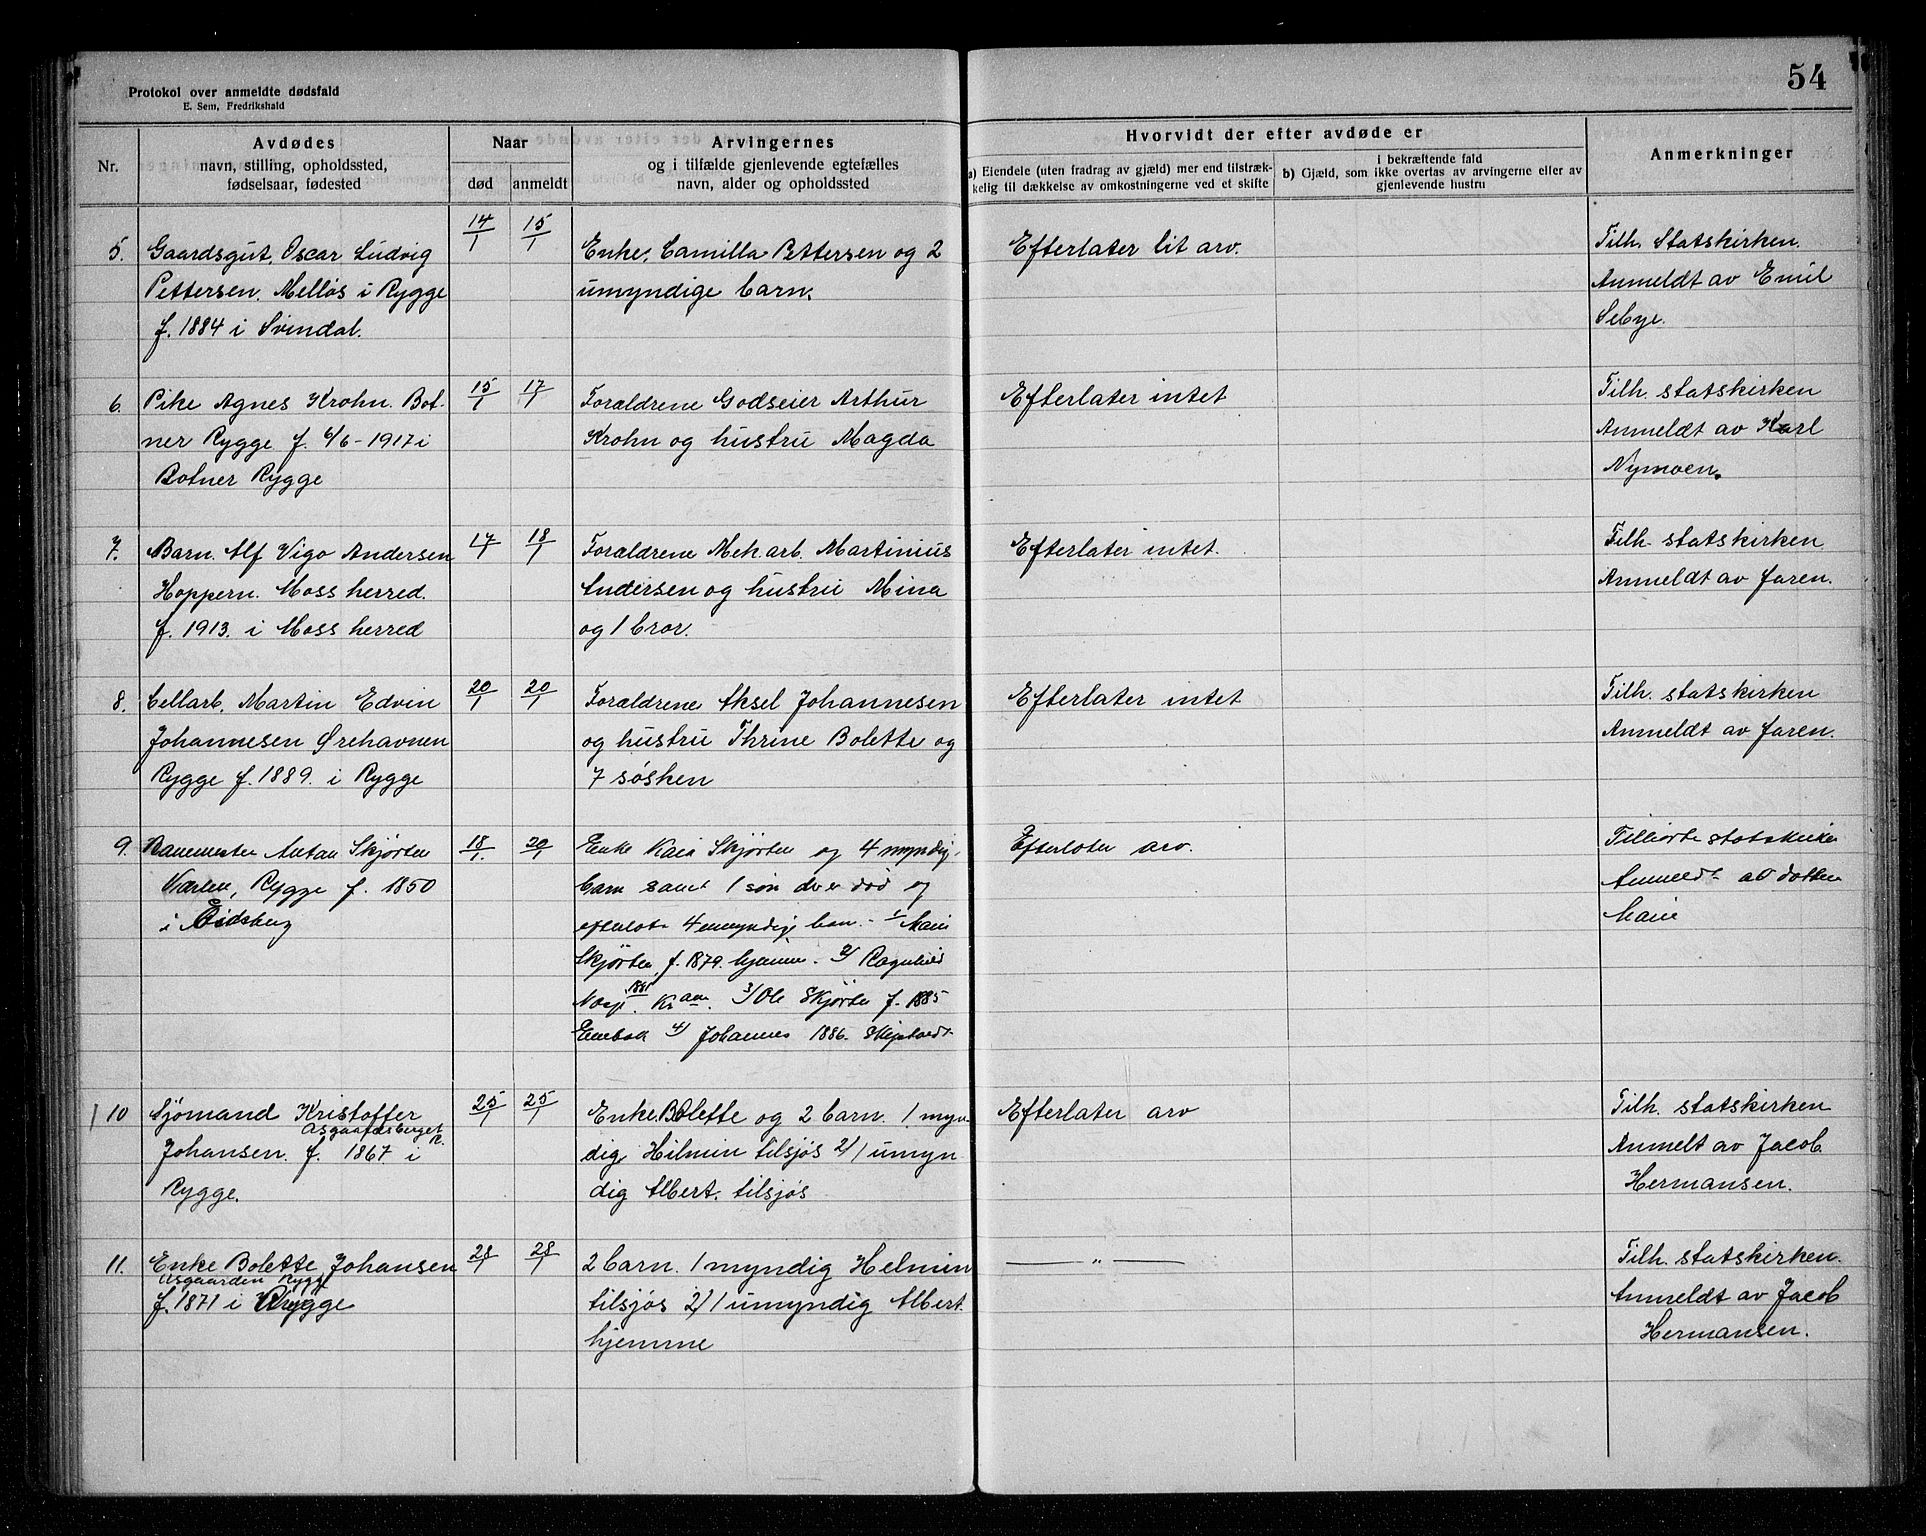 54
Protokol over anmeldte dødsfald
E. Sem, Fredrikshald
Nr.
Avdødes
navn, stilling, opholdssted,
fødselsaar, fødested
Naar
død
anmeldt
Arvingernes
og i tilfælde gjenlevende egtefælles
navn, alder og opholdssted
Hvorvidt der efter avdøde er
a) Eiendele (uten fradrag av gjæld) mer end tilstræk-
kelig til dækkelse av omkostningerne ved et skifte
i bekræftende fald
b) Gjæld, som ikke overtas av arvingerne eller av
gjenlevende hustru
Anmerkninger
5.
Gaardsgut. Oscar Ludvig
Pettersen. Melløs i Rygge
f. 1884 i Svindal.
14/1
15/1
Enke. Camilla Pettersen og 2
umyndige barn.
Efterlater lit arv.
Tilh. Statskirken.
Anmeldt av Emil
Sebye.
6.
Pike Agnes Krohn. Bot-
ner Rygge f. 6/6-1917 i
Botner Rygge
15/1
17/1
Forældrene Godseier Arthur
Krohn og hustru Magda
Efterlater intet
Tilh. statskirken
Anmeldt av Karl
Nymoen.
7.
Barn. Alf Vigo Andersen
Hoppern. Moss herred.
f. 1913. i Moss herred
17/1
18/1
Forældrene Mek.arb. Martinius
Andersen og hustru Mina
og 1 bror.
Efterlater intet.
Tilh. statskirken
Anmeldt av faren.
8.
Cellarb. Martin Edvin
Johannesen Ørehavnen
Rygge f. 1889. i Rygge
20/1
20/1
Forældrene Aksel Johannesen
og hustru Thrine Bolette og
7 søsken
Efterlater intet
Tilh. statskirken
Anmeldt av faren.
9.
Banemester Anton Skjørten
Varlen, Rygge f. 1850
i Eidsberg
18/1.
20/1
Enke Kaia Skjørten og 4 myndig.
barn samt 1 søn der er død og
efterlot 4 umyndige barn. 1/ Marie
Skjørten f. 1879. hjemme. 2/ Ragnhild
1881 Kr.ania. 3/ Ole Skjørten f. 1885
4/ Johannes 1886.
Efterlater arv.
Tilhørte statskirken
Anmeldt av datter
Marie
10
Sjømand Kristoffer
Asgaardsberget R.
Johansen. f. 1867 i
Rygge.
25/1
25/1
Enke. Bolette og 2 barn. 1 myn-
dig Hilmin tilsjøs 2/ 1 umyn
dig Albert. tilsjøs
Efterlater arv
Tilh. statskirken
Anmelt av Jacob
Hermansen.
11.
Enke Bolette Johansen
Asgaarden Rygge
f. 1871 i Rygge
28/1
28/1
2 barn. 1 myndig Helmin
tilsjøs 2/ 1 umyndig Albert.
hjemme
— „ —
Tilh. statskirken.
Anmeldt av Jacob
Hermansen.